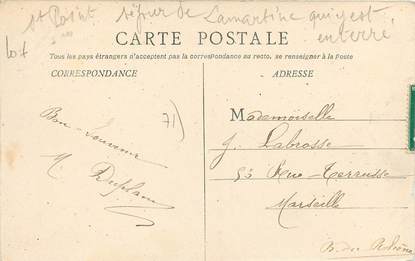 St Point séjour de Lamartine qui y est
enterré
lot
CARTE POSTALE
Tous les pays étrangers n'acceptent pas la correspondance au recto, se renseigner à la Poste
CORRESPONDANCE
ADRESSE
71)
Bon Souvenir
M. Duplan
Mademoiselle
J. Labrosse
53 Rue Terrusse
Marseille
B. du Rhône